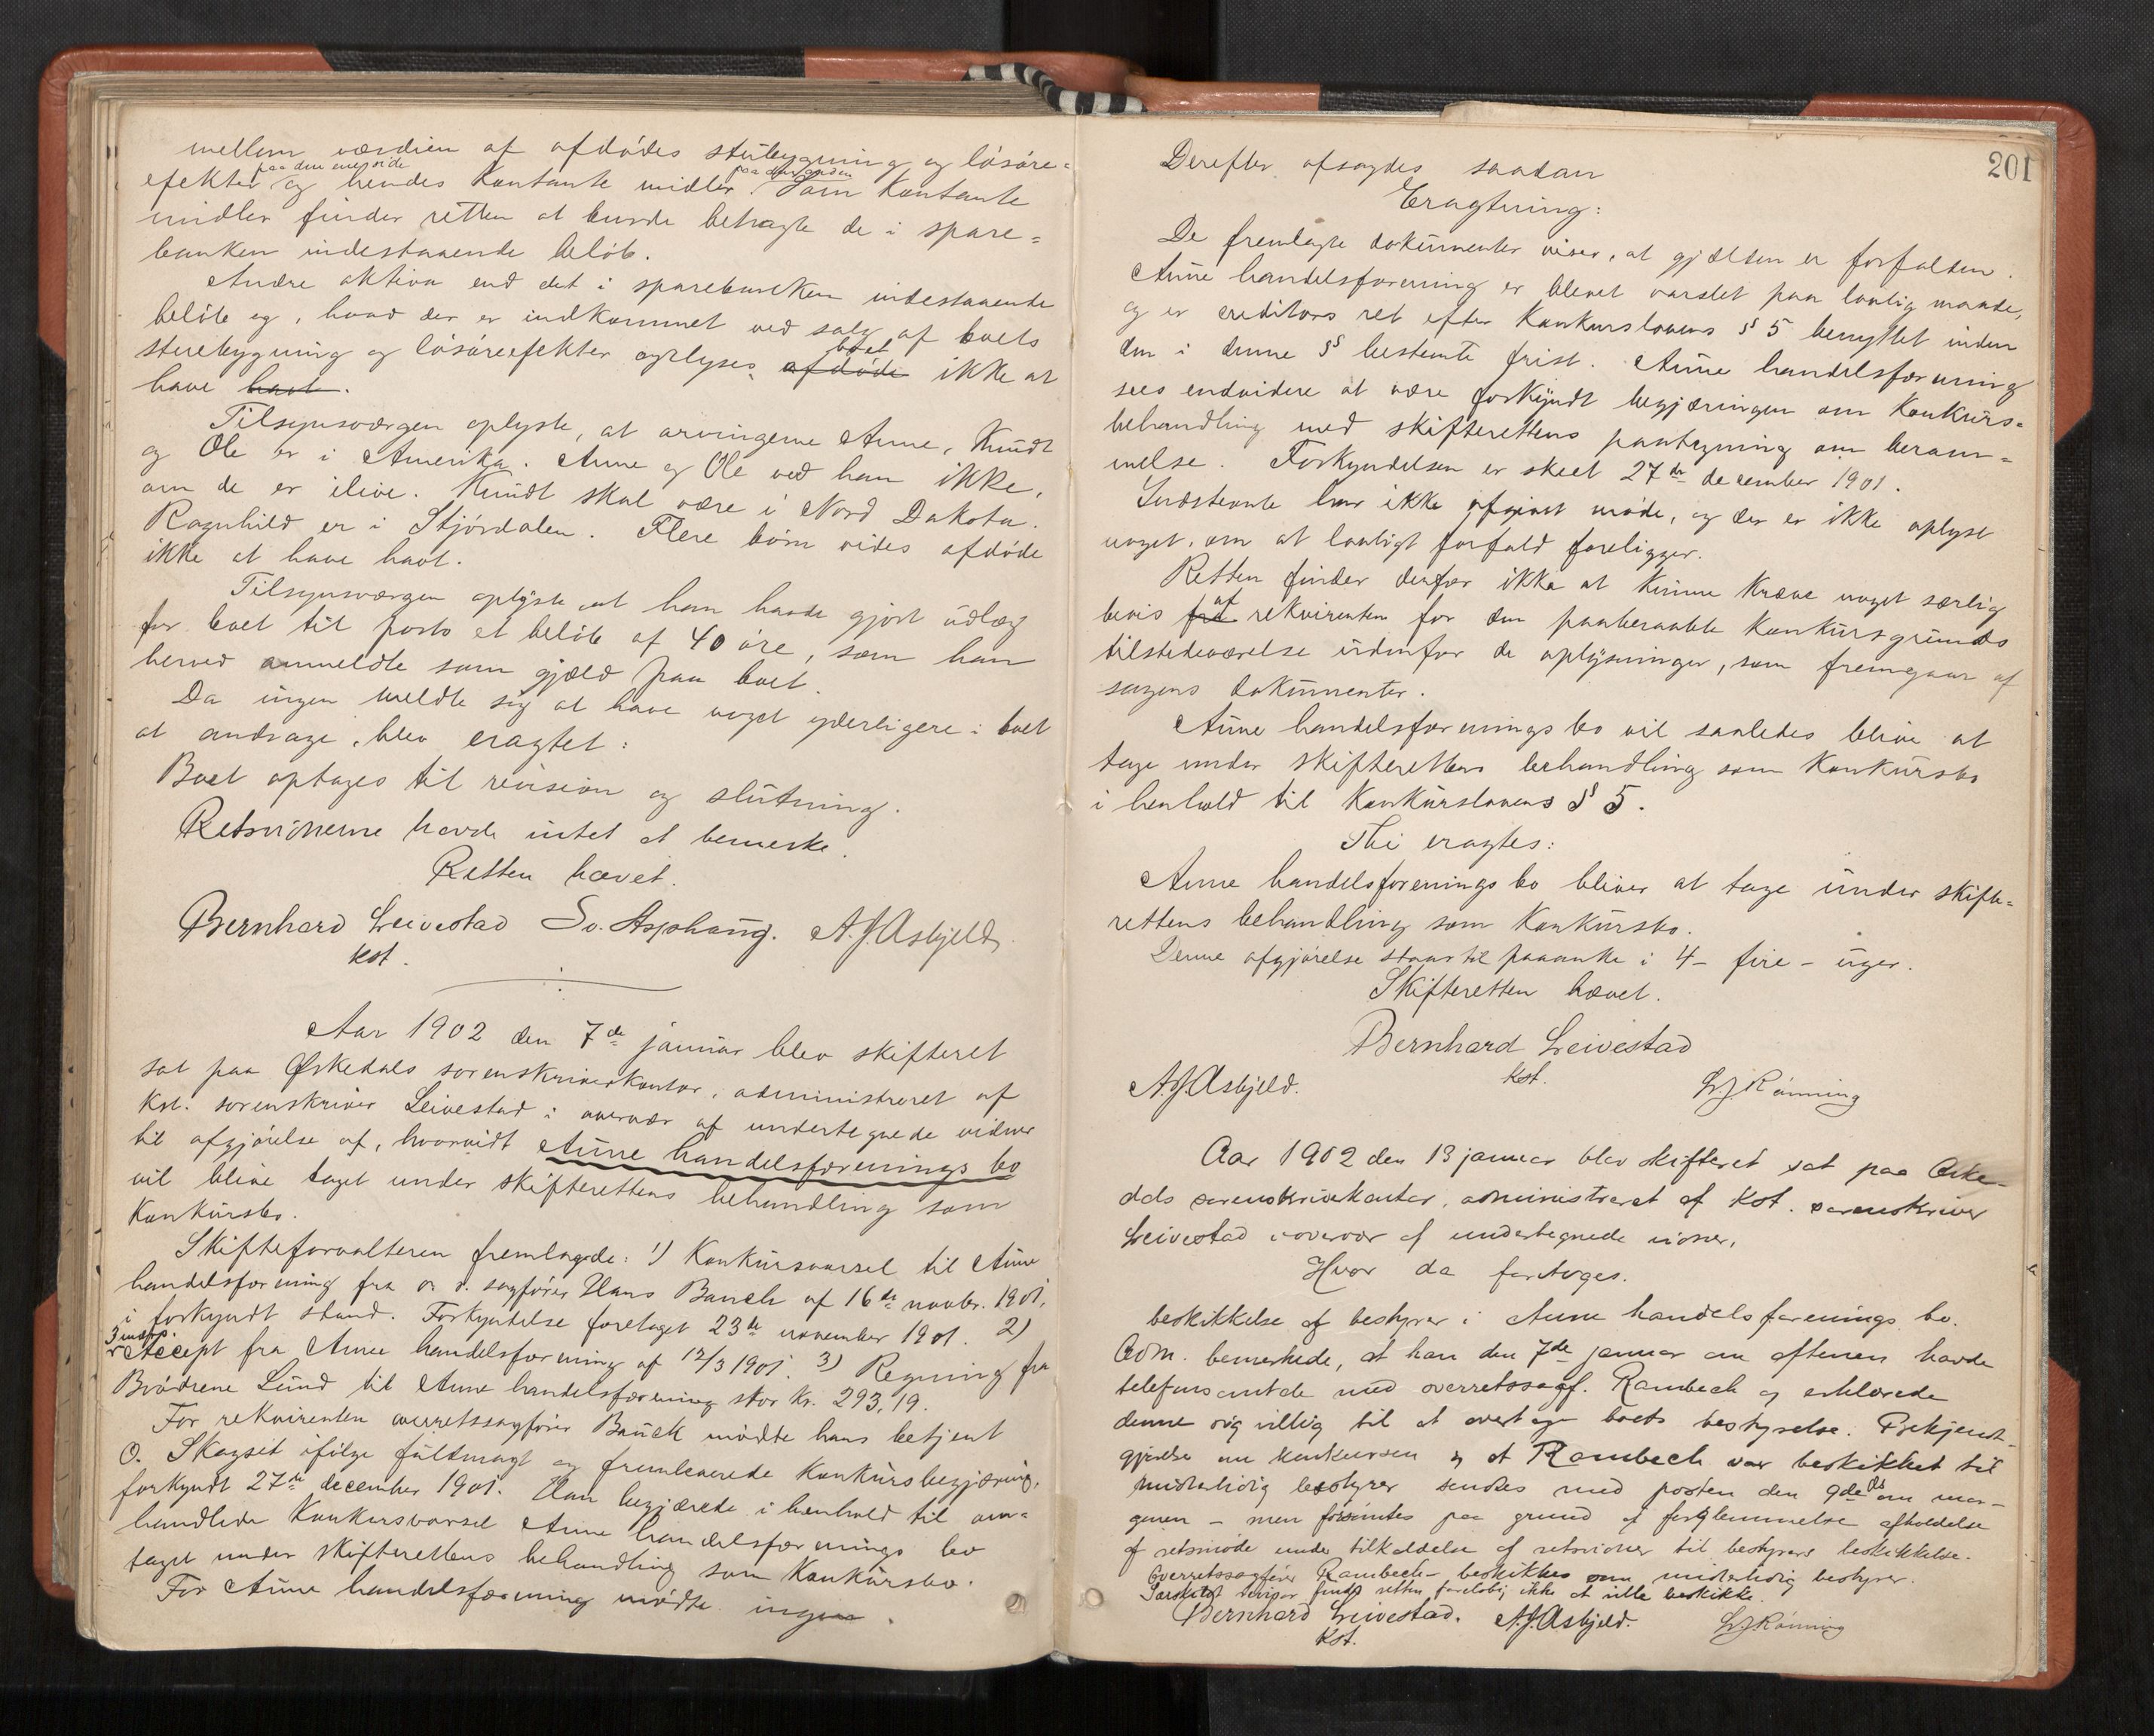 mellem værdien af afdödes stuebygning og lösöre-
paa den ene side paa den anden
efekter og hendes kontante midler. Som kontante
midler finder retten at burde betragte de i spare-
banken indestaaende belöb.
Andre aktiva end det i sparebanken indestaaende
belöb og, hvad der er indkommet ved salg af boets
boet
stuebygning og lösöreefekter oplyses afdöde ikke at
have havt.
Tilsynsværgen oplyste, at arvingerne Anne, Knudt
og Ole er i Amerika. Anne og Ole ved han ikke,
om de er ilive. Knudt skal være i Nord Dakota.
Ragnhild er i Stjördalen. Flere börn vides afdöde
ikke at have havt.
Tilsynsværgen oplyste, at han havde gjort udlæg
for boet til porto et belöb af 40 öre, som han
herved anmeldte som gjæld paa boet.
Da ingen meldte sig at have noget yderligere i boet
at andrage, blev eragtet:
Boet optages til revision og slutning.
Retsvidnerne havde intet at bemerke.
Retten hævet.
Bernhard Leivestad Sv. Asphaug. A. J. Asbjeld
kst.
Aar 1902 den 7de januar blev skifteret
sat paa Ørkedals sorenskriverkontor, administreret af
kst. sorenskriver Leivestad i overvær af undertegnede vidner
til afgjörelse af, hvorvidt Aune handelsforenings bo
vil blive taget under skifterettens behandling som
konkursbo.
Skifteforvalteren fremlagde: 1) Konkursvarsel til Aune
handelsforening fra o. r. sagförer Hans Bauck af 16de novbr. 1901,
i forkyndt stand. Forkyndelse foretaget 23de november 1901. 2)
Accept fra Aune handelsforening af 12/3 1901. 3) Regning fra
Brödrene Lund til Aune handelsforening stor kr. 293,19.
For rekvirenten overretssagförer Bauck mödte hans betjent
O. Skagset ifölge fuldmagt og fremleverede konkursbegjæring,
forkyndt 27de december 1901. Han begjærede i henhold til om-
handlede konkursvarsel Aune handelsforenings bo
taget under skifterettens behandling som konkursbo.
For Aune handelsforening mödte ingen.
201
Derefter afsagdes saadan
Eragtning:
De fremlagte dokumenter viser, at gjælden er forfalden.
Aune handelsforening er blevet varslet paa lovlig maade,
og er creditors ret efter konkurslovens § 5 benyttet inden
den i denne § bestemte frist. Aune handelsforening
sees endvidere at være forkyndt begjæringen om konkurs-
behandling med skifterettens paategning om beram-
melse. Forkyndelsen er skeet 27de december 1901.
Indstevnte har ikke afgivet möde, og der er ikke oplyst
noget, om at lovligt forfald foreligger.
Retten finder derfor ikke at kunne kræve noget særlig
af
bevis fra rekvirenten for den paaberaabte konkursgrunds
tilstedeværelse udenfor de oplysninger, som fremgaar af
sagens dokumenter.
Aune handelsforenings bo vil saaledes blive at
tage under skifterettens behandling som konkursbo
i henhold til konkurslovens § 5.
Thi eragtes:
Aune handelsforenings bo bliver at tage under skifte-
rettens behandling som konkursbo.
Denne afgjörelse staar til paaanke i 4 - fire - uger.
Skifteretten hævet.
Bernhard Leivestad
kst.
A. J. Asbjeld. Rönning
Aar 1902 den 13 januar blev skifteret sat paa Orke-
dals sorenskriverkontor, administreret af kst. sorenskriver
Leivestad i overvær af undertegnede vidner.
Hvor da foretoges.
beskikkelse af bestyrer i Aune handelsforenings bo.
Adm. bemerkede, at han den 7de januar om aftenen havde
telefonsamtale med overretssagf. Rambech og erklærede
denne sig villig til at overtage boets bestyrelse. Bekjendt-
gjörelse om konkursen og at Rambech var beskikket til
midlertidig bestyrer sendtes med posten den 9de ds om mor-
genen - men forsömtes paa grund af forglemmelse afholdelse
af retsmöde under tilkaldelse af retsvidner til bestyrers beskikkelse.
Overretssagförer Rambech beskikkes som midlertidig bestyrer.
finder retten foreløbig ikke at ville beskikke.
Bernhard Leivestad. A. J. Asbjeld. Rönning
kst.